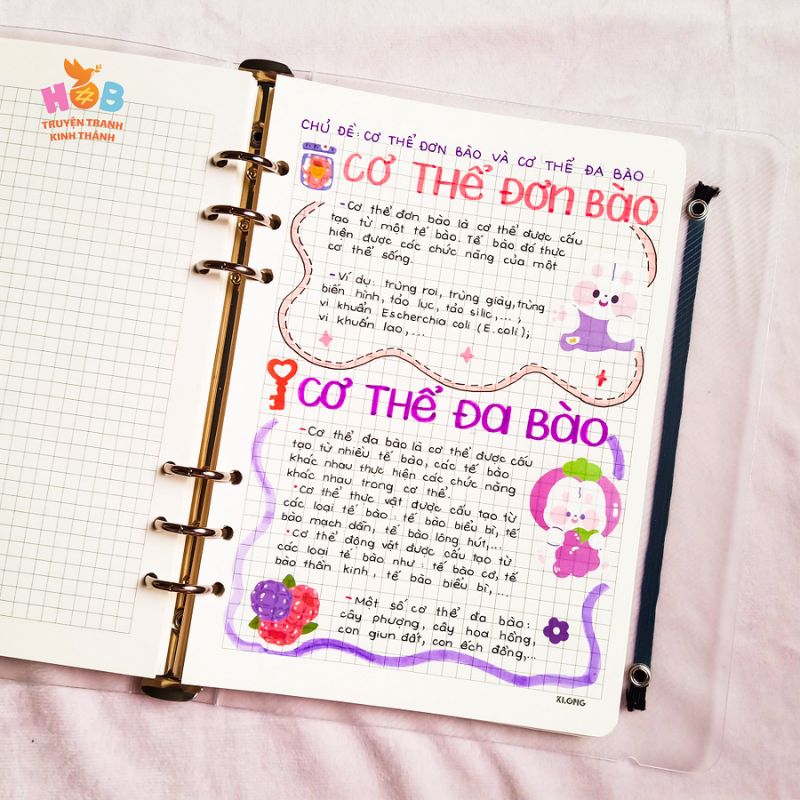 HOB
TRUYỆN TRANH
KINH THÁNH
CHỦ ĐỀ: CƠ THỂ ĐƠN BÀO VÀ CƠ THỂ ĐA BÀO
CƠ THỂ ĐƠN BÀO
- Cơ thể đơn bào là cơ thể được cấu
tạo từ một tế bào. Tế bào đó thực
hiện được các chức năng của một
cơ thể sống.
- Ví dụ: trùng roi, trùng giày, trùng
biến hình, tảo lục, tảo silic,... ;
vi khuẩn Escherchia coli (E.coli);
vi khuẩn lao,...
CƠ THỂ ĐA BÀO
- Cơ thể đa bào là cơ thể được cấu
tạo từ nhiều tế bào, các tế bào
khác nhau thực hiện các chức năng
khác nhau trong cơ thể.
• Cơ thể thực vật được cấu tạo từ
các loại tế bào: tế bào biểu bì, tế
bào mạch dẫn, tế bào lông hút,...
• Cơ thể động vật được cấu tạo từ
các loại tế bào như: tế bào cơ, tế
bào thần kinh, tế bào biểu bì,...
- Một số cơ thể đa bào:
cây phượng, cây hoa hồng,
con giun đất, con ếch đồng,...
XI.ONG